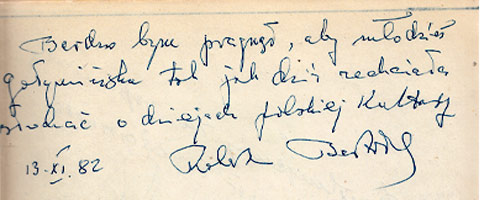 Bardzo bym pragnął, aby młodzież
gołymińska tak jak dziś zechciała
słuchać o dziejach polskiej Kultury
13-XI.82